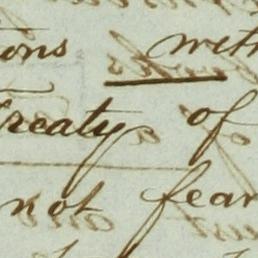 ons with
Treaty of
not fear